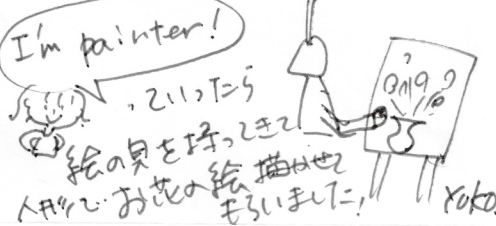 I'm painter!
っていったら
絵の具を持ってきて
人がいて お花の絵 描かせて
もらいました!
Yoko.